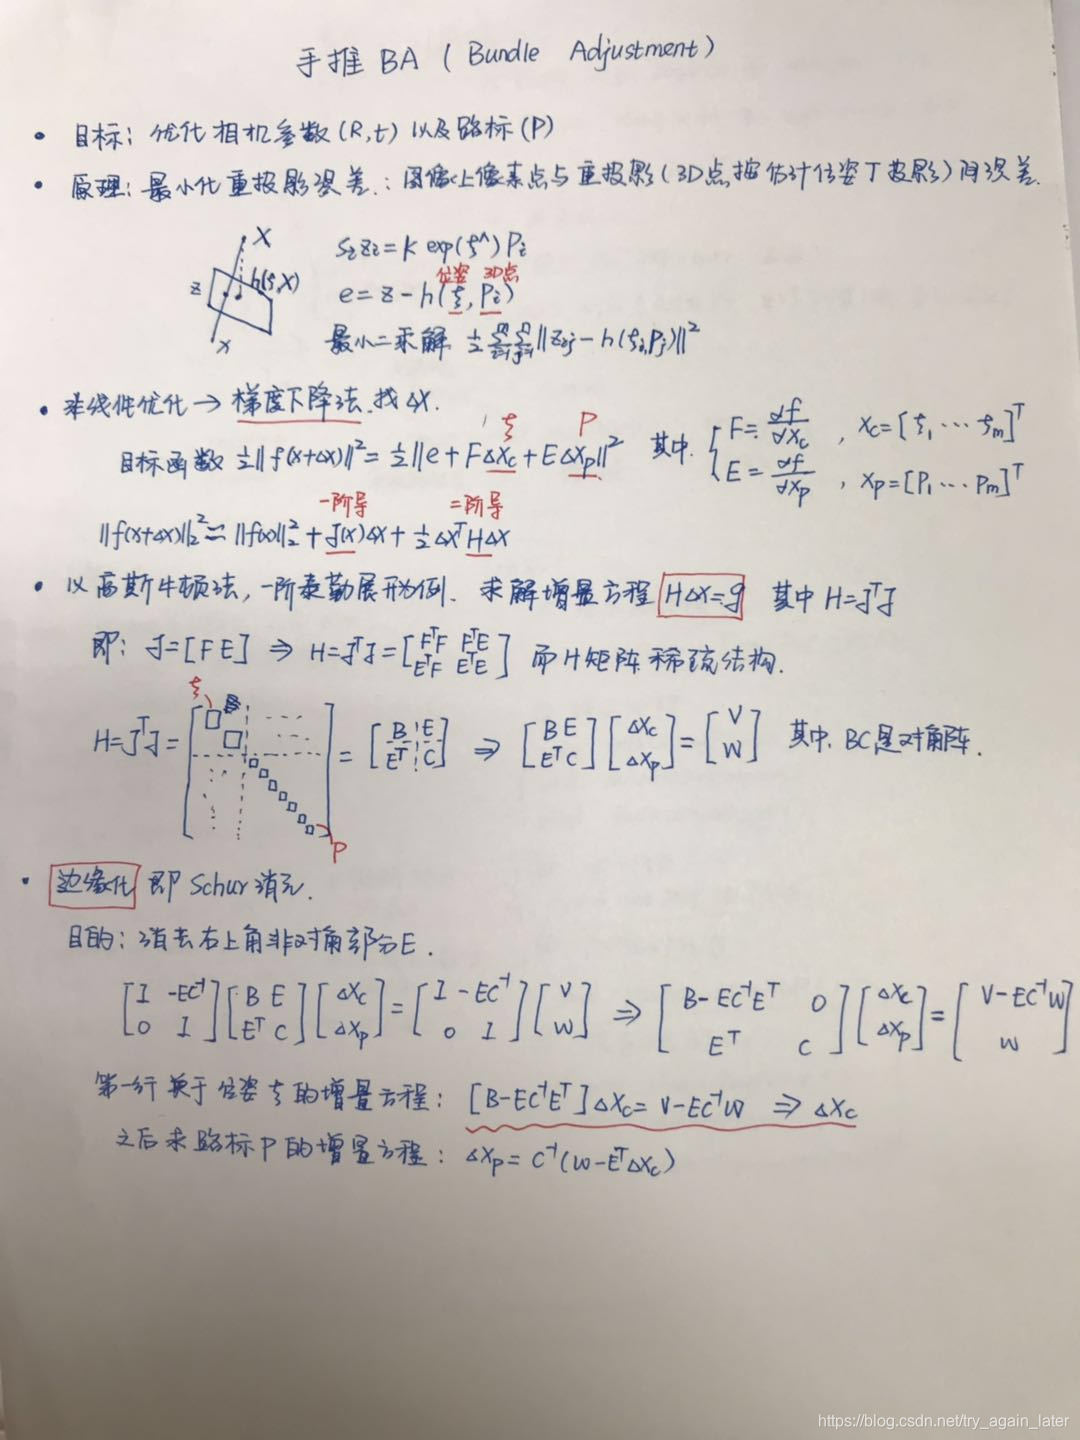 手推 BA ( Bundle Adjustment )
• 目标: 优化相机参数(R,t) 以及路标(P)
• 原理: 最小化重投影误差.: 图像上像素点与重投影(3D点按估计位姿T投影)间误差.
X
z
h(ξ,X)
x
s₂z₂ = K exp(ξ^) P₂
位姿 3D点
e = z - h(ξ, P₂)
最小二乘解 ½ Σ Σ ||z₂j - h(ξ₂,Pj)||²
• 非线性优化 → 梯度下降法. 找 ΔX.
ξ P
目标函数 ½||f(x+Δx)||² = ½||e + FΔXc + EΔXp||² 其中. { F = df/dXc , Xc = [ξ₁ ··· ξm]ᵀ
E = df/dXp , Xp = [P₁ ··· Pm]ᵀ
一阶导 二阶导
||f(x+Δx)||₂² = ||f(x)||₂² + J(x)Δx + ½ΔxᵀHΔx
• 以高斯牛顿法, 一阶泰勒展开为例. 求解增量方程 HΔX=g 其中 H=JᵀJ
即: J=[F E] ⇒ H=JᵀJ = [FᵀF FᵀE; EᵀF EᵀE] 而H矩阵稀疏结构.
ξ
H=JᵀJ = [ ] = [B E; Eᵀ C] ⇒ [B E; Eᵀ C] [ΔXc; ΔXp] = [V; W] 其中. BC是对角阵.
P
• 边缘化 即 Schur 消元.
目的: 消去右上角非对角部分E.
[I -EC⁻¹; 0 I] [B E; Eᵀ C] [ΔXc; ΔXp] = [I -EC⁻¹; 0 I] [V; W] ⇒ [B-EC⁻¹Eᵀ 0; Eᵀ C] [ΔXc; ΔXp] = [V-EC⁻¹W; W]
第一行关于位姿ξ的增量方程: [B-EC⁻¹Eᵀ]ΔXc = V-EC⁻¹W ⇒ ΔXc
之后求路标P的增量方程: ΔXp = C⁻¹(W-EᵀΔXc)
https://blog.csdn.net/try_again_later